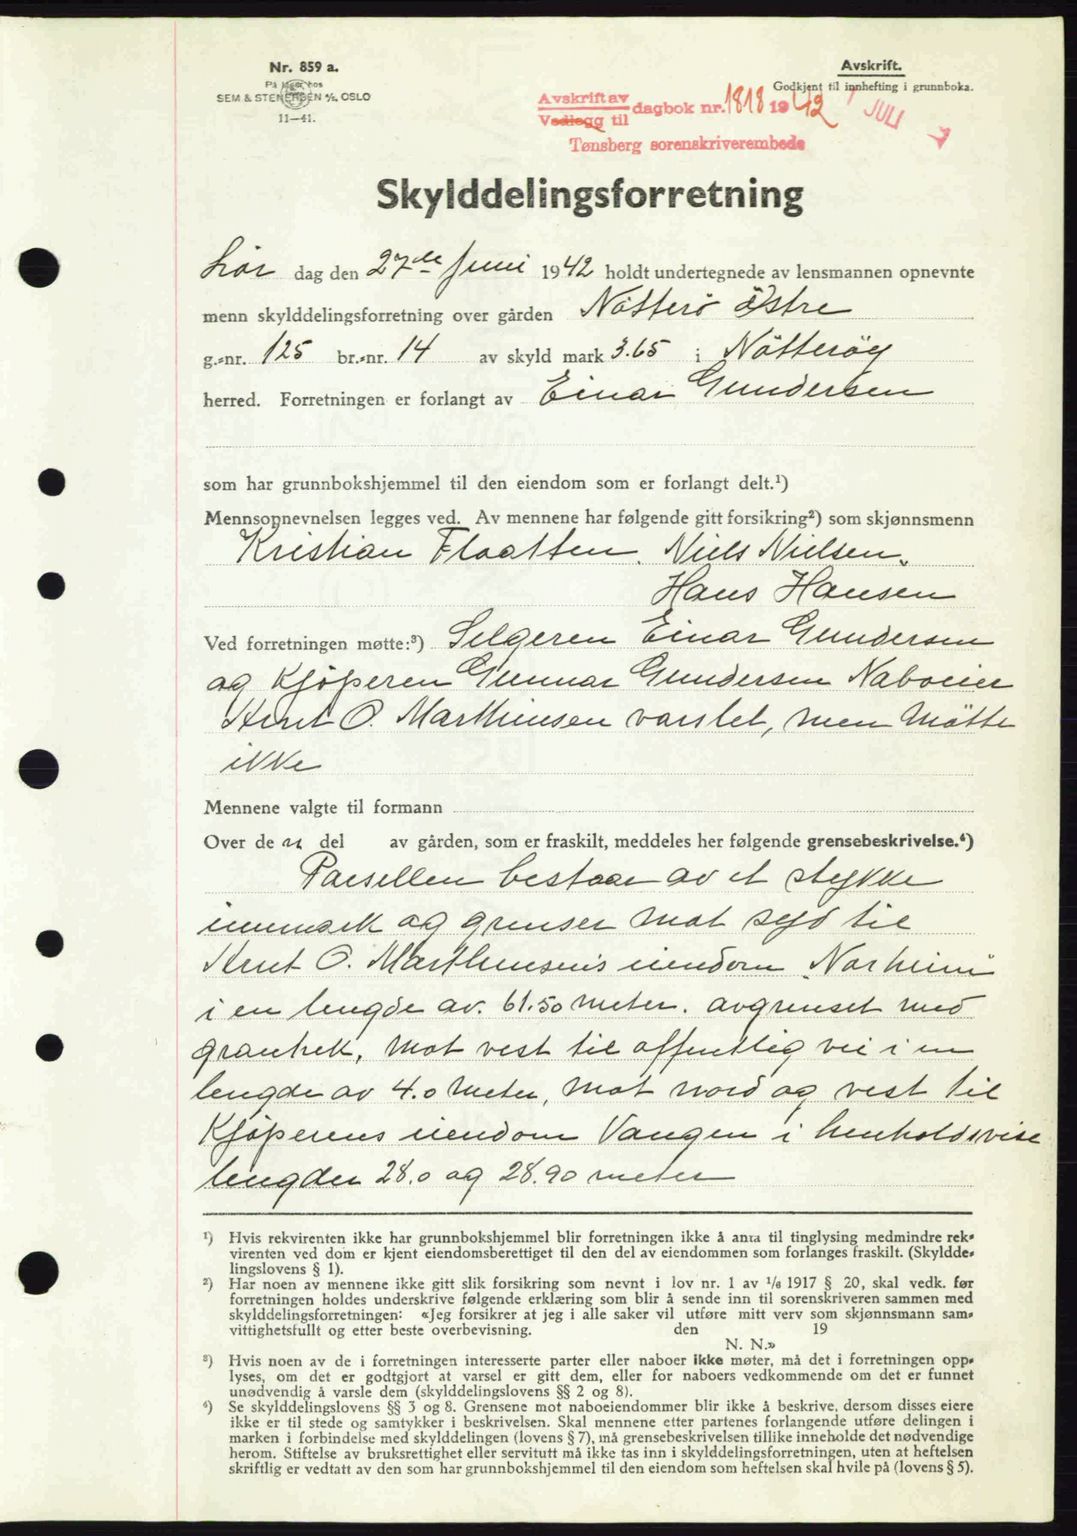 Nr. 859 a.
På lager hos
SEM & STENERSEN A/S, OSLO
11—41.
Avskrift.
Godkjent til innhefting i grunnboka.
Avskrift av
Vedlegg til dagbok nr. 1818 1942 7 JULI
Tønsberg sorenskriverembede
Skylddelingsforretning
Lør dag den 27de Juni 1942 holdt undertegnede av lensmannen opnevnte
menn skylddelingsforretning over gården Nötterö Östre
g.-nr. 125 br.-nr. 14 av skyld mark 3.65 i Nötteröy
herred. Forretningen er forlangt av Einar Gundersen
som har grunnbokshjemmel til den eiendom som er forlangt delt.¹)
Mennsopnevnelsen legges ved. Av mennene har følgende gitt forsikring²) som skjønnsmenn
Kristian Flaatten. Niels Nielsen.
Hans Hansen
Ved forretningen møtte:³) Selgeren Einar Gundersen
og Kjöperen Gunnar Gundersen Naboeier
Arnt O. Marthinsen varslet, men Mötte
ikke
Mennene valgte til formann
Over de n del av gården, som er fraskilt, meddeles her følgende grensebeskrivelse.⁴)
Parsellen bestaar av et stykke
innmark og grenser mot syd til
Arnt O. Marthinsens eiendom „Norheim"
i en lengde av. 61.50 meter. avgrenset med
granhek, mot vest til offentlig vei i en
lengde av 4.0 meter, mot nord og vest til
Kjöperens eiendom Vangen i henholdsvise
lengder 28.0 og 28.90 meter
¹) Hvis rekvirenten ikke har grunnbokshjemmel blir forretningen ikke å anta til tinglysing medmindre rek-
virenten ved dom er kjent eiendomsberettiget til den del av eiendommen som forlanges fraskilt. (Skyldde-
lingslovens § 1).
²) Har noen av mennene ikke gitt slik forsikring som nevnt i lov nr. 1 av 1/6 1917 § 20, skal vedk. før
forretningen holdes underskrive følgende erklæring som blir å sende inn til sorenskriveren sammen med
skylddelingsforretningen: «Jeg forsikrer at jeg i alle saker vil utføre mitt verv som skjønnsmann sam-
vittighetsfullt og etter beste overbevisning. den 19
N. N.»
³) Hvis noen av de i forretningen interesserte parter eller naboer ikke møter, må det i forretningen opp-
lyses, om det er godtgjort at varsel er gitt dem, eller for naboers vedkommende om det er funnet
unødvendig å varsle dem (skylddelingslovens §§ 2 og 8).
⁴) Se skylddelingslovens §§ 3 og 8. Grensene mot naboeiendommer blir ikke å beskrive, dersom disses eiere
ikke er til stede og samtykker i beskrivelsen. Skal mennene etter partenes forlangende utføre delingen i
marken i forbindelse med skylddelingen (lovens § 7), må grensebeskrivelsen tillike inneholde det nødvendige
herom. Stiftelse av bruksrettighet eller servitutt må ikke tas inn i skylddelingsforretningen, uten at heftelsen
skriftlig er vedtatt av den som har grunnbokshjemmel til den eiendom som heftelsen skal hvile på (lovens § 5).